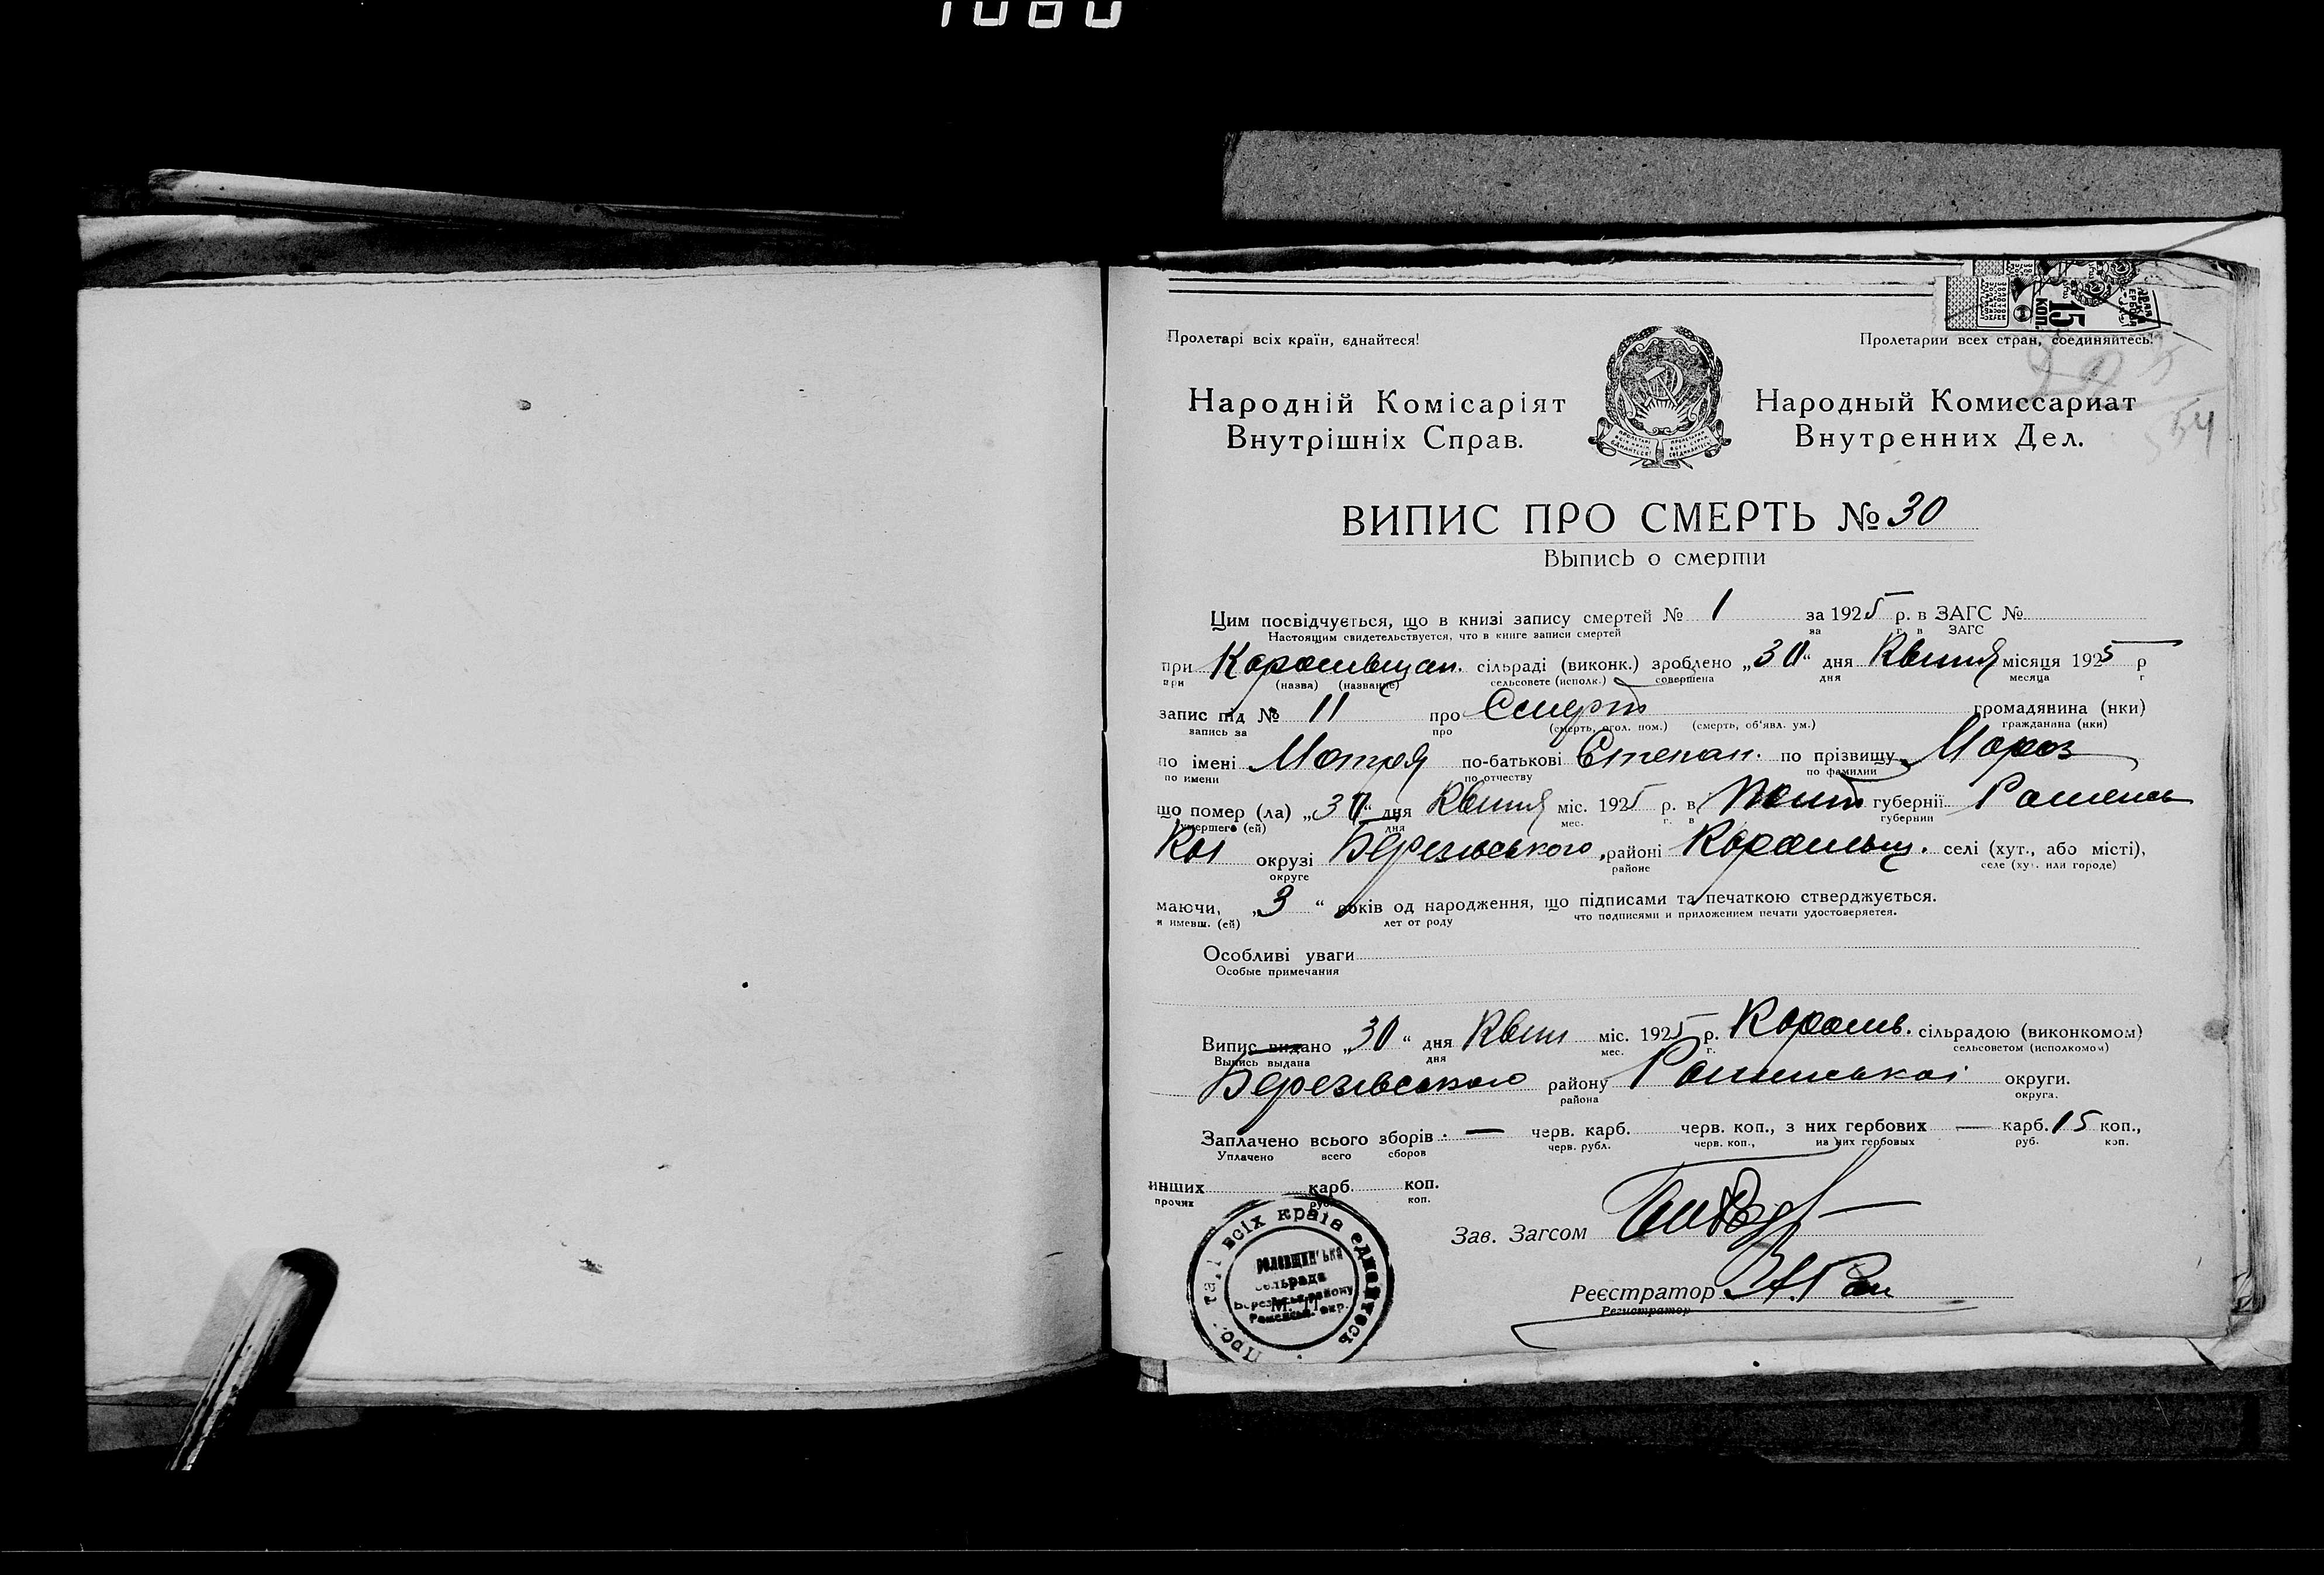 1080
15
КОП.
Пролетарі всіх країн, єднайтеся!
Пролетарии всех стран, соединяйтесь!
Народній Комісаріят
Внутрішніх Справ.
Народный Комиссариат
Внутренних Дел.
54
ВИПИС ПРО СМЕРТЬ № 30
Выпись о смерти
Цим посвідчується, що в книзі запису смертей № 1 за 1925 р. в ЗАГС №
Настоящим свидетельствуется, что в книге записи смертей за г. в ЗАГС
при сільраді (виконк.) зроблено „30“ дня Квітня місяця 1925 р
при (назва) (название) сельсовете (исполк.) совершена дня месяца г
запис під № 11 про Смерть громадянина (нки)
запись за про (смерть, огол. пом.) (смерть, об'явл. ум.) гражданина (нки)
по імені Мотря по-батькові Степан. по прізвищу Мороз
по имени по отчеству по фамилии
що помер (ла) „30“ дня Квітня міс. 1925 р. в Полт губернії Роменсь
умершего (ей) дня мес. г. в губернии
кої окрузі Березівського районі селі (хут., або місті),
округе районе селе (хут. или городе)
маючи, „3“ років од народження, що підписами та печаткою стверджується.
и имевш. (ей) лет от роду что подписями и приложением печати удостоверяется.
Особливі уваги
Особые примечания
Випис видано „30“ дня Квіт міс. 1925 р. сільрадою (виконкомом)
Выпись выдана дня мес. г. сельсоветом (исполкомом)
Березівського району Роменської округи.
района округа.
Заплачено всього зборів — черв. карб. черв. коп., з них гербових — карб. 15 коп.,
Уплачено всего сборов черв. рубл. черв. коп., из них гербовых руб. коп.
инших карб. коп.
прочих руб. коп.
Зав. Загсом
Реєстратор
Регистратор
всіх країв єднайтесь
М. П.